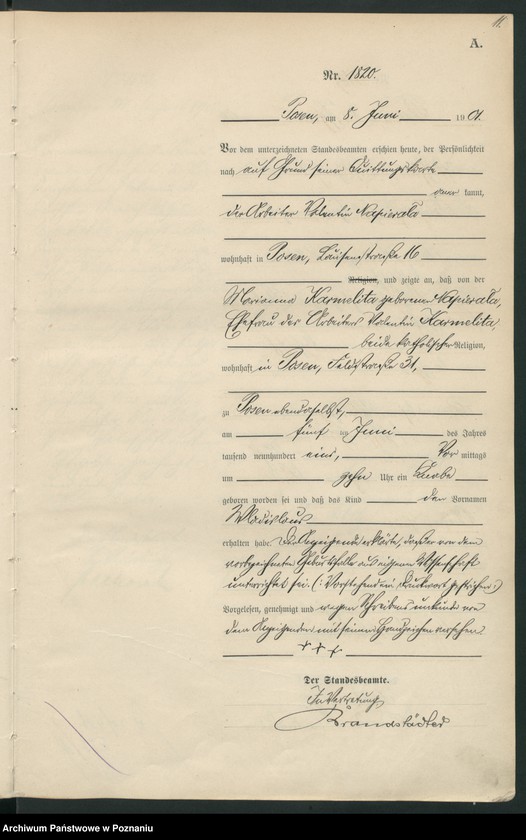 11.
A.
Nr. 1820.
Posen, am 8. Juni 1901.
Vor dem unterzeichneten Standesbeamten erschien heute, der Persönlichkeit
nach auf Grund seiner Quittungskarte
aner kannt,
der Arbeiter Valentin Napierała
wohnhaft in Posen, 16
Religion, und zeigte an, daß von der
Marianna Karmelita geborenen Napierała,
Ehefrau des Arbeiters Valentin Karmelita,
beide katholischer Religion,
wohnhaft in Posen, Feldstraße 31,
zu Posen ebendaselbst,
am fünf ten Juni des Jahres
tausend neunhundert eins, Vor mittags
um zehn Uhr ein Knabe
geboren worden sei und daß das Kind den Vornamen
Wladislaus
erhalten habe. Der Anzeigende erklärte, daß er von dem
vorbezeichneten Geburtsfalle aus eigener Wissenschaft
unterrichtet sei. (: Vorstehend ein Druckwort gestrichen :)
Vorgelesen, genehmigt und wegen Schreibens unkunde von
dem Anzeigenden mit seinem Handzeichen versehen.
+ + +
Der Standesbeamte.
In Vertretung
Brandstädter
Archiwum Państwowe w Poznaniu